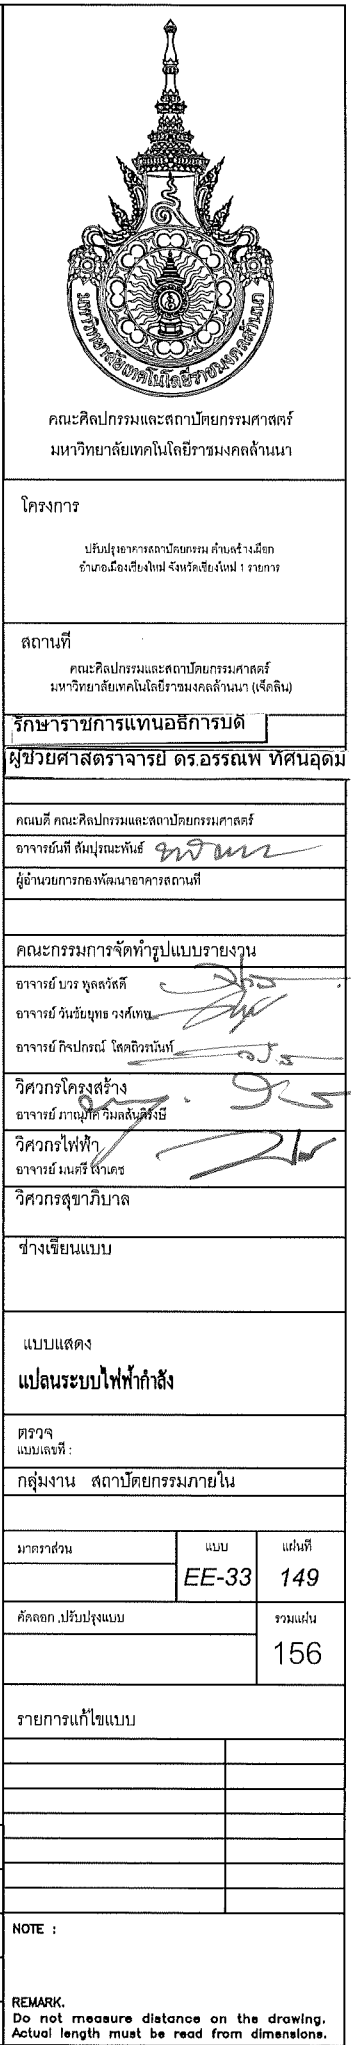 มหาวิทยาลัยเทคโนโลยีราชมงคลล้านนา
คณะศิลปกรรมและสถาปัตยกรรมศาสตร์
มหาวิทยาลัยเทคโนโลยีราชมงคลล้านนา
โครงการ
ปรับปรุงอาคารสถาปัตยกรรม ตำบลช้างเผือก
อำเภอเมืองเชียงใหม่ จังหวัดเชียงใหม่ 1 รายการ
สถานที่
คณะศิลปกรรมและสถาปัตยกรรมศาสตร์
มหาวิทยาลัยเทคโนโลยีราชมงคลล้านนา (เจ็ดลิน)
รักษาราชการแทนอธิการบดี
ผู้ช่วยศาสตราจารย์ ดร.อรรณพ ทัศนอุดม
คณบดี คณะศิลปกรรมและสถาปัตยกรรมศาสตร์
อาจารย์นที สัมปุรณะพันธ์
ผู้อำนวยการกองพัฒนาอาคารสถานที่
คณะกรรมการจัดทำรูปแบบรายงาน
อาจารย์ บวร พูลสวัสดิ์
อาจารย์ วันชัยยุทธ วงศ์เทพ
อาจารย์ กิจปกรณ์ โสตถิวรนันท์
วิศวกรโครงสร้าง
อาจารย์ ภาณุภัค
วิศวกรไฟฟ้า
อาจารย์ มนตรี เงาเดช
วิศวกรสุขาภิบาล
ช่างเขียนแบบ
แบบแสดง
แปลนระบบไฟฟ้ากำลัง
ตรวจ
แบบเลขที่ :
กลุ่มงาน สถาปัตยกรรมภายใน
มาตราส่วน แบบ แผ่นที่
EE-33 149
คัดลอก ,ปรับปรุงแบบ รวมแผ่น
156
รายการแก้ไขแบบ
NOTE :
REMARK.
Do not measure distance on the drawing.
Actual length must be read from dimensions.